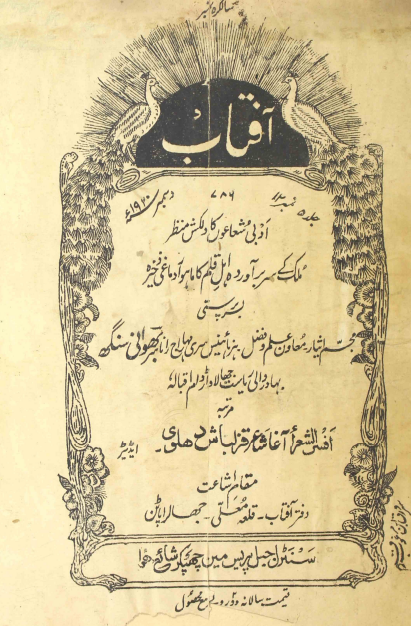 سالگرہ نمبر
آفتاب
جلد ۵ نمبر
۷۸۶
دسمبر ۱۹۲۰ء
ادبی شعاعوں کا دلکش منظر
ملک کے سربرآوردہ اہل قلم کا ماہوار دماغی ذخیرہ
بسرپرستی
مجسم ایثار معاون علم و فضل ہزہائینس سری مہاراج رانا بھوانی سنگھ
بہادر والی ریاست جھالاواڑ دام اقبالہٗ
مرتبہ
افسر الشعراء آغا شاعر قزلباش دھلوی۔ ایڈیٹر
مقام اشاعت
دفتر آفتاب۔ قلعہ معلّی۔ جھالراپاٹن
سنٹرل جیل پریس میں چھپکر شائع ہوا
قیمت سالانہ دو روپے مع محصول